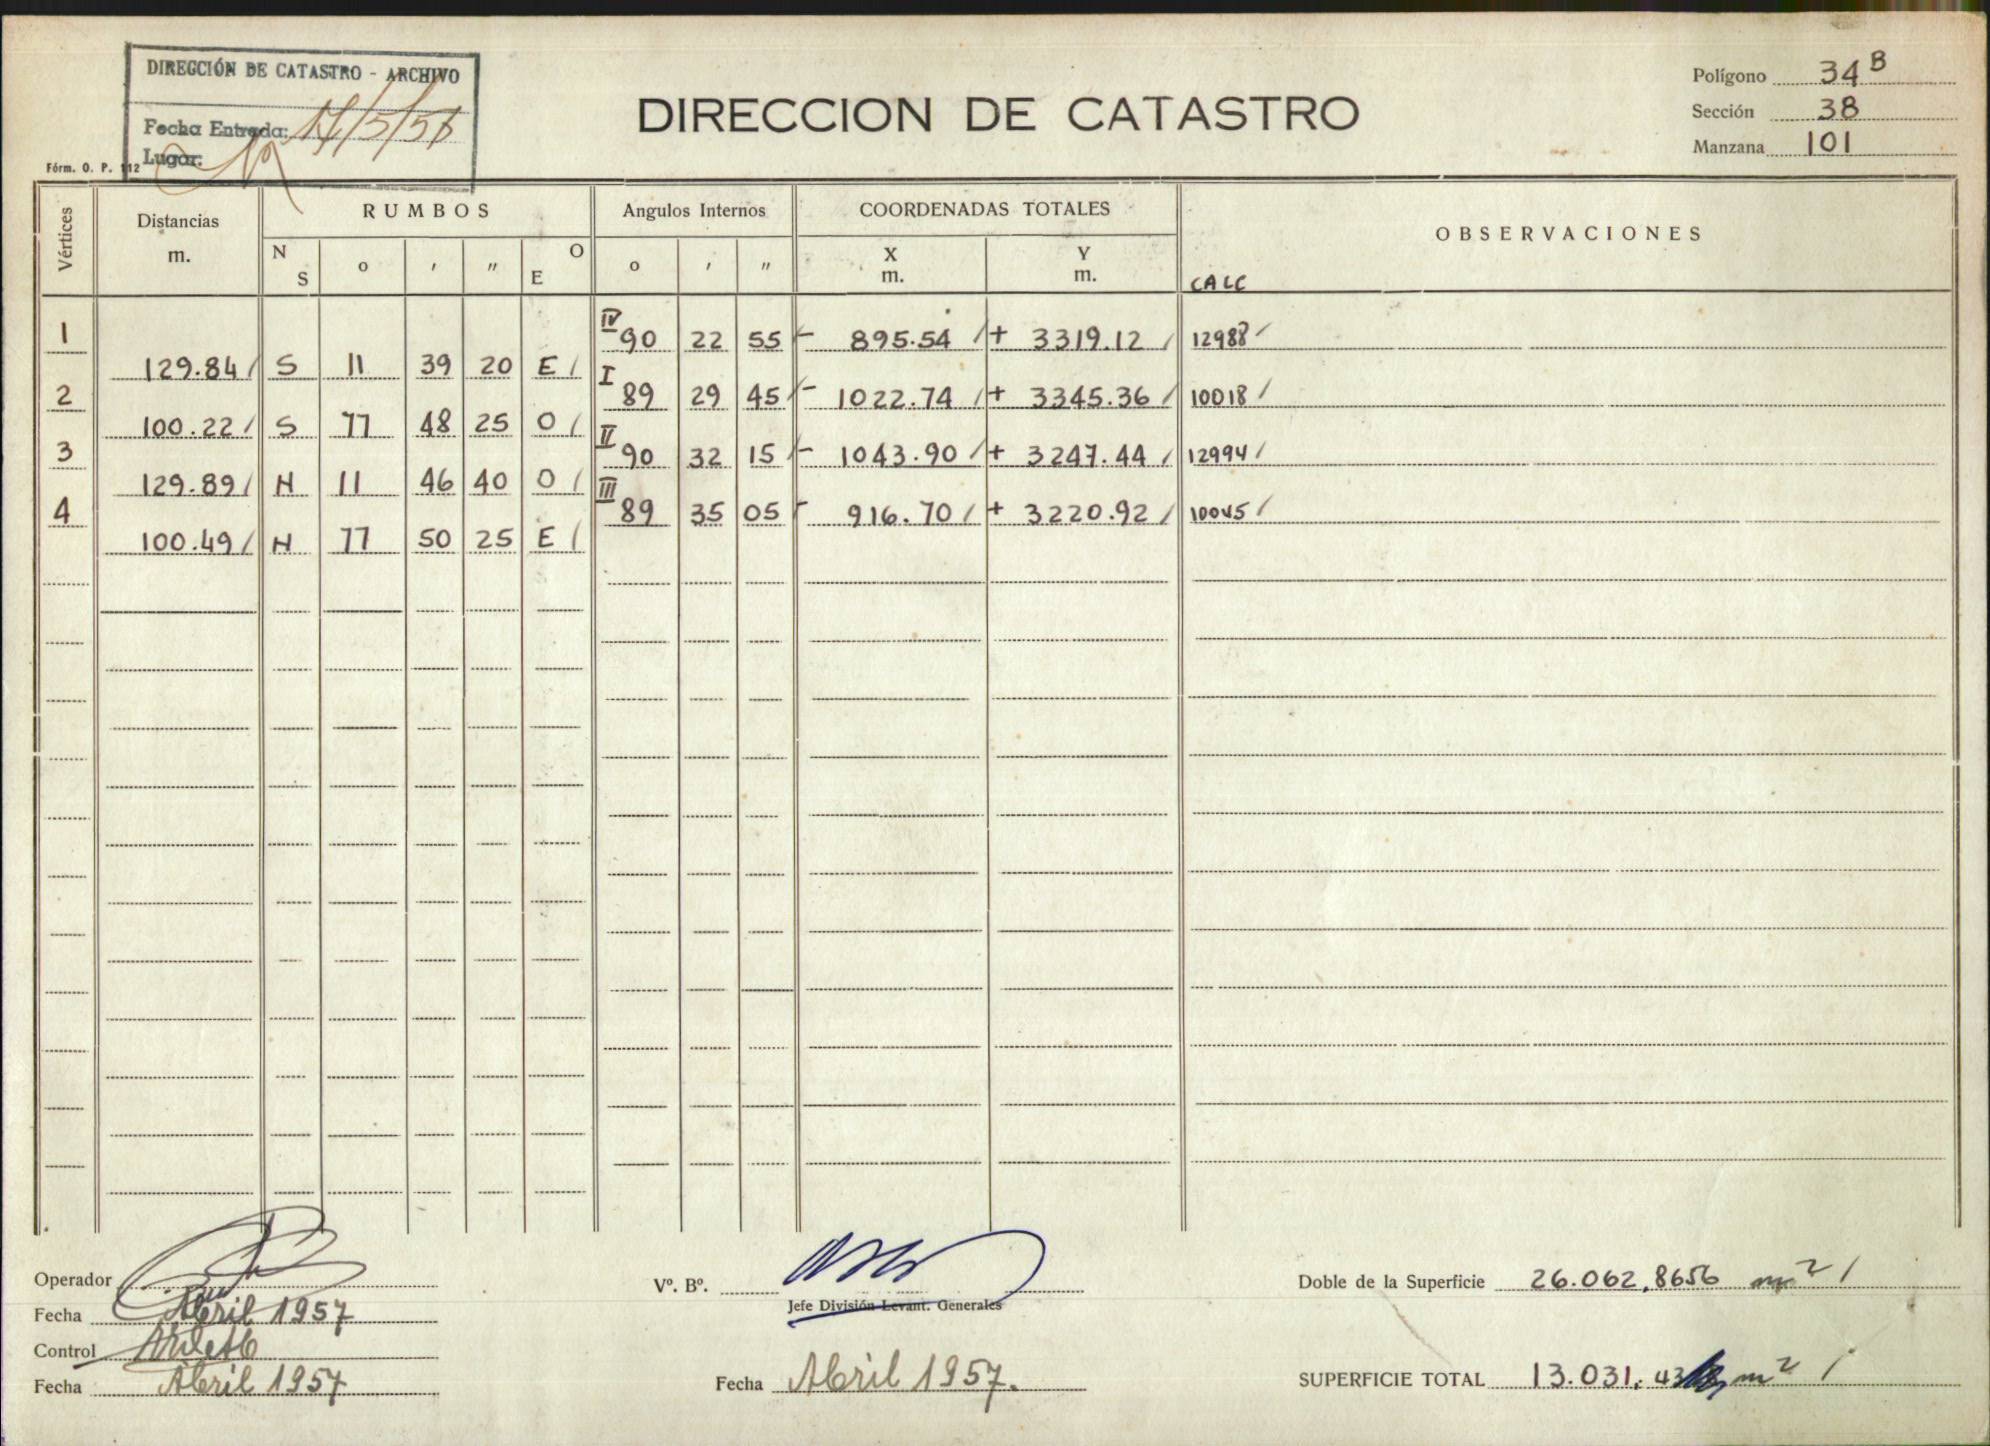 DIRECCIÓN DE CATASTRO - ARCHIVO
Fecha Entrada: 17/5/57
Lugar:
Fórm. O. P. 112
DIRECCION DE CATASTRO
Polígono 34 B
Sección 38
Manzana 101
Vértices
Distancias
m.
RUMBOS
N
S
o
′
″
O
E
Angulos Internos
o
′
″
COORDENADAS TOTALES
X
m.
Y
m.
OBSERVACIONES
CALC
1 IV 90 22 55 - 895.54 / + 3319.12 / 12988 /
129.84 / S 11 39 20 E /
2 I 89 29 45 / - 1022.74 / + 3345.36 / 10018 /
100.22 / S 77 48 25 O /
3 II 90 32 15 / - 1043.90 / + 3247.44 / 12994 /
129.89 / N 11 46 40 O /
4 III 89 35 05 - 916.70 / + 3220.92 / 10045 /
100.49 / N 77 50 25 E /
Operador
Fecha Abril 1957
Control
Fecha Abril 1957
Vº. Bº.
Jefe División Levant. Generales
Fecha Abril 1957.
Doble de la Superficie 26.062,8656 m² /
SUPERFICIE TOTAL 13.031,43 m² /